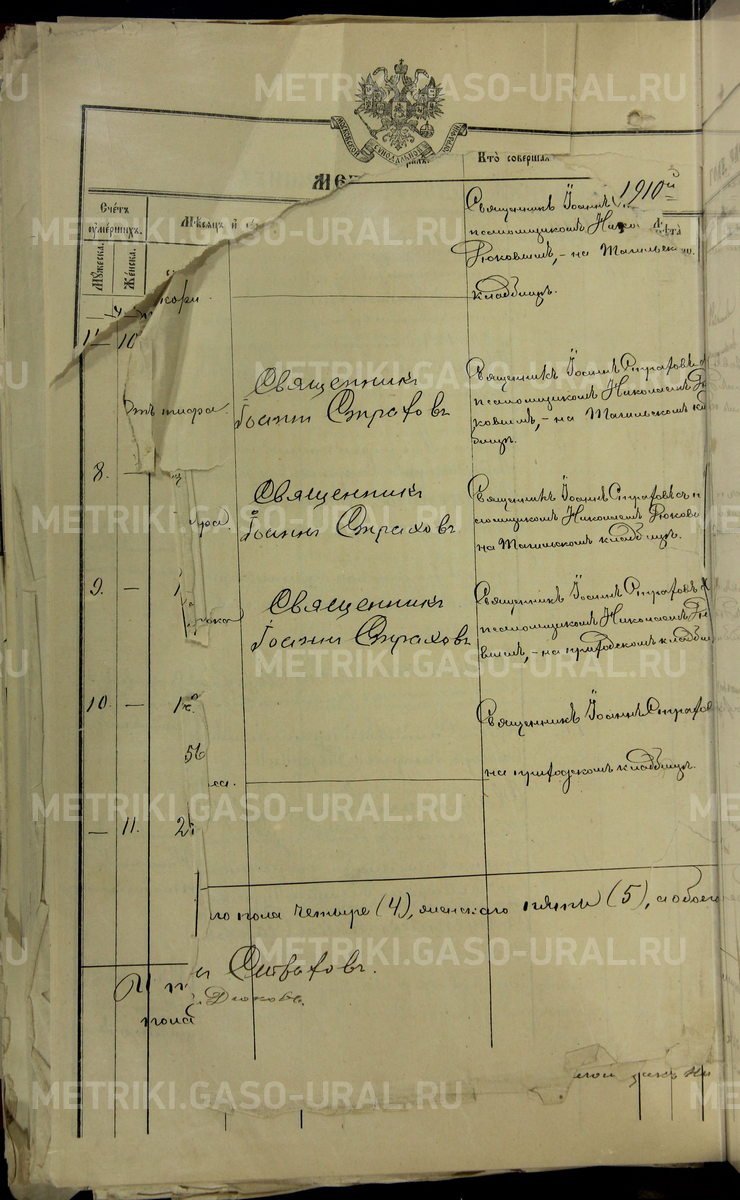 METRIKI.GASO-URAL.RU
МОСКОВСКОЙ СУНОДАЛЬНОЙ
МЕТ
Кто совершал
1910 й
Счетъ умершихъ.
Мужеска.
Женска.
Мѣсяцъ и
Священникъ Іоаннъ
псаломщикомъ Нико
Дюковымъ, - на Тагильско
кладбищѣ.
кори.
11
10
отъ тифа.
Священникъ
Іоаннъ Страховъ
Священникъ Іоаннъ Страховъ съ
псаломщикомъ Николаемъ Дю
ковымъ, - на Тагильскомъ кла
дбищѣ.
8.
—
Священникъ
Іоаннъ Страховъ
Священникъ Іоаннъ Страховъ съ п
саломщикомъ Николаемъ Дюковы
на Тагильскомъ кладбищѣ.
9.
—
1
Священникъ
Іоаннъ Страховъ
Священникъ Іоаннъ Страховъ съ
псаломщикомъ Николаемъ Дю
вымъ, - на приходскомъ кладби
10.
—
1
Священникъ Іоаннъ Страхов
на приходскомъ кладбищѣ.
—
11.
2
го пола четыре (4), женскаго пять (5), а обоего
Страховъ.
Дюковъ.
пола